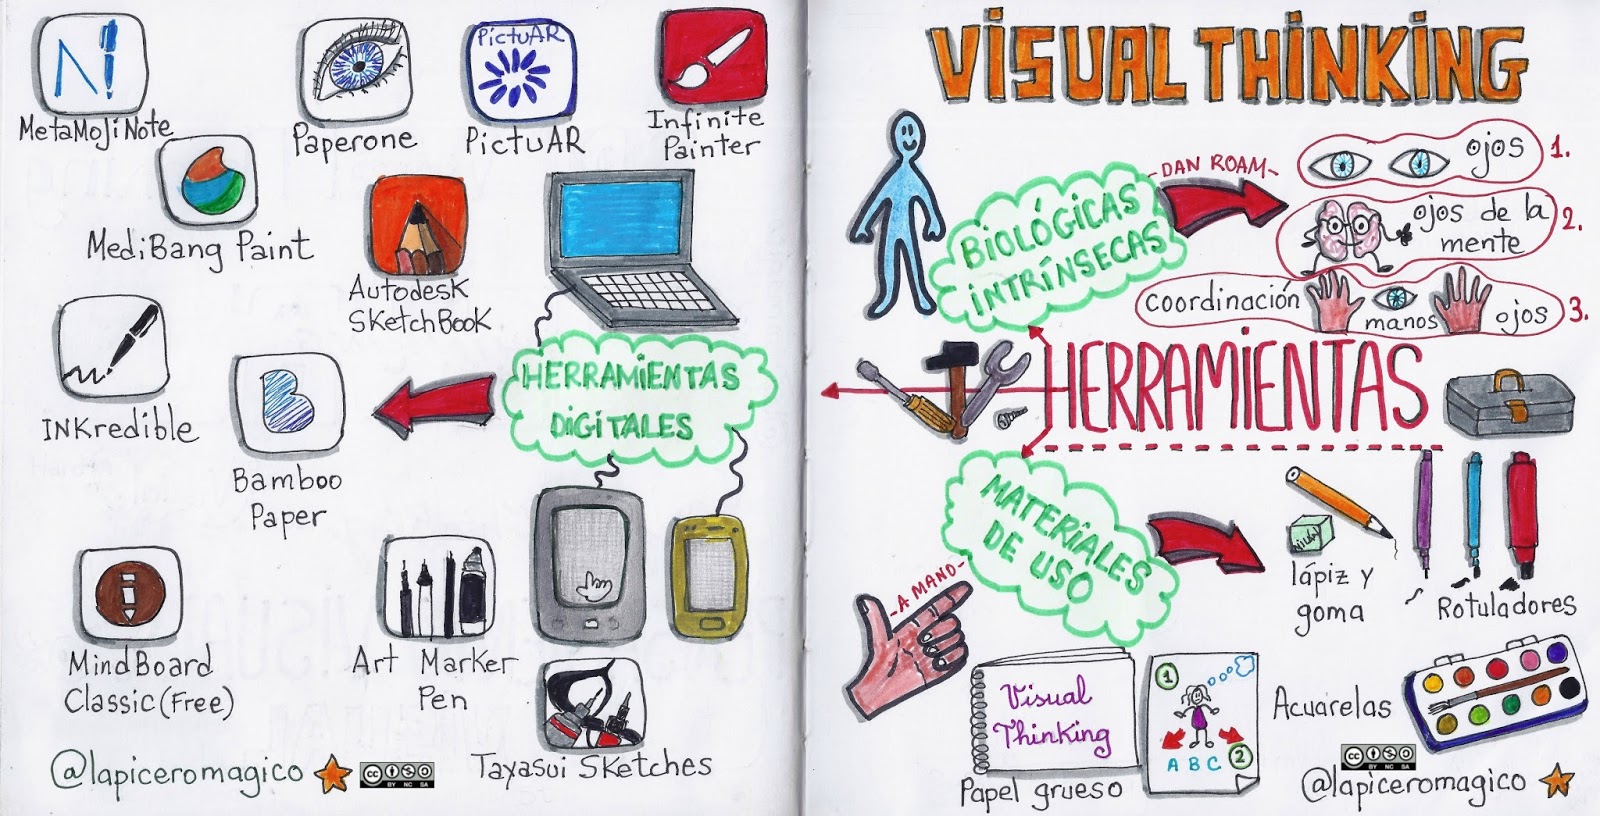 MetaMojiNote
Paperone
PictuAR
PictuAR
Infinite
Painter
MediBang Paint
Autodesk
SketchBook
INKredible
Bamboo
Paper
HERRAMIENTAS
DIGITALES
MindBoard
Classic (Free)
Art Marker
Pen
Tayasui Sketches
@lapiceromagico
cc
BY NC SA
VISUAL THINKING
BIOLÓGICAS
INTRÍNSECAS
-DAN ROAM-
ojos 1.
ojos de la
mente 2.
coordinación
manos
ojos 3.
HERRAMIENTAS
MATERIALES
DE USO
-A MANO-
MILAN
lápiz y
goma
Rotuladores
Visual
Thinking
Papel grueso
1
2
A B C
Acuarelas
cc
BY NC SA
@lapiceromagico